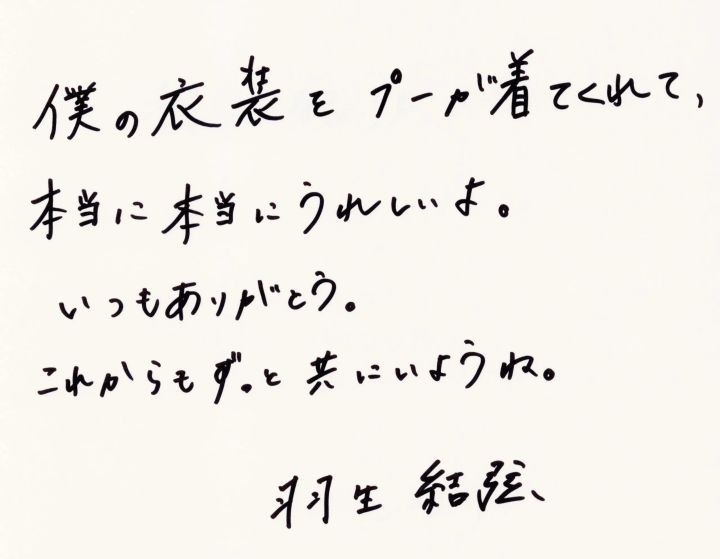 僕の衣装を プーが着てくれて、
本当に本当にうれしいよ。
いつもありがとう。
これからもずっと共にいようね。
羽生 結弦